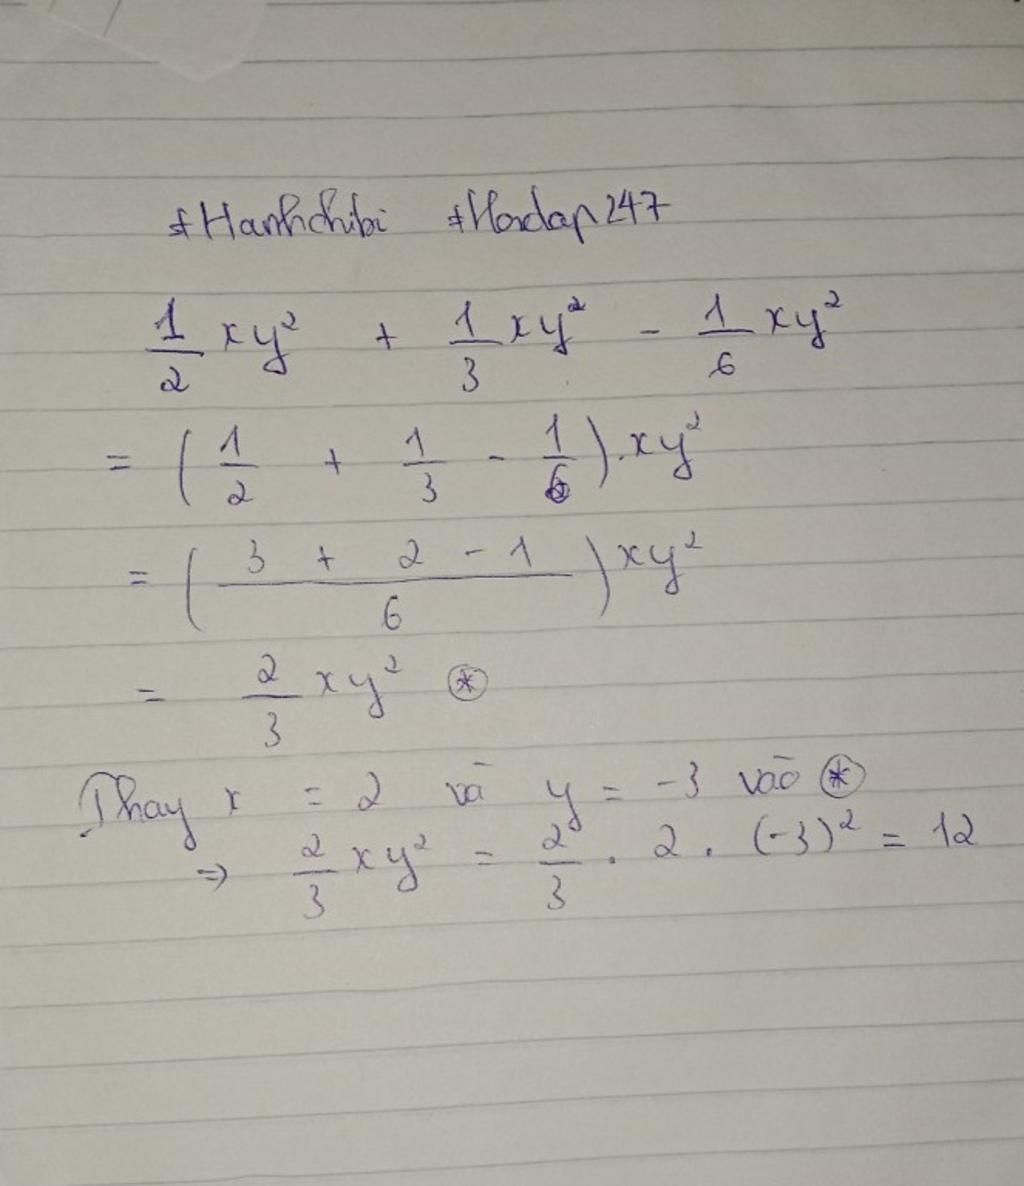 #Hanhchibi #Hoidap247
1/2 xy² + 1/3 xy² - 1/6 xy²
= (1/2 + 1/3 - 1/6).xy²
= (3 + 2 - 1 / 6) xy²
= 2/3 xy² ⊛
Thay x = 2 và y = -3 vào ⊛
=> 2/3 xy² = 2/3 . 2 . (-3)² = 12